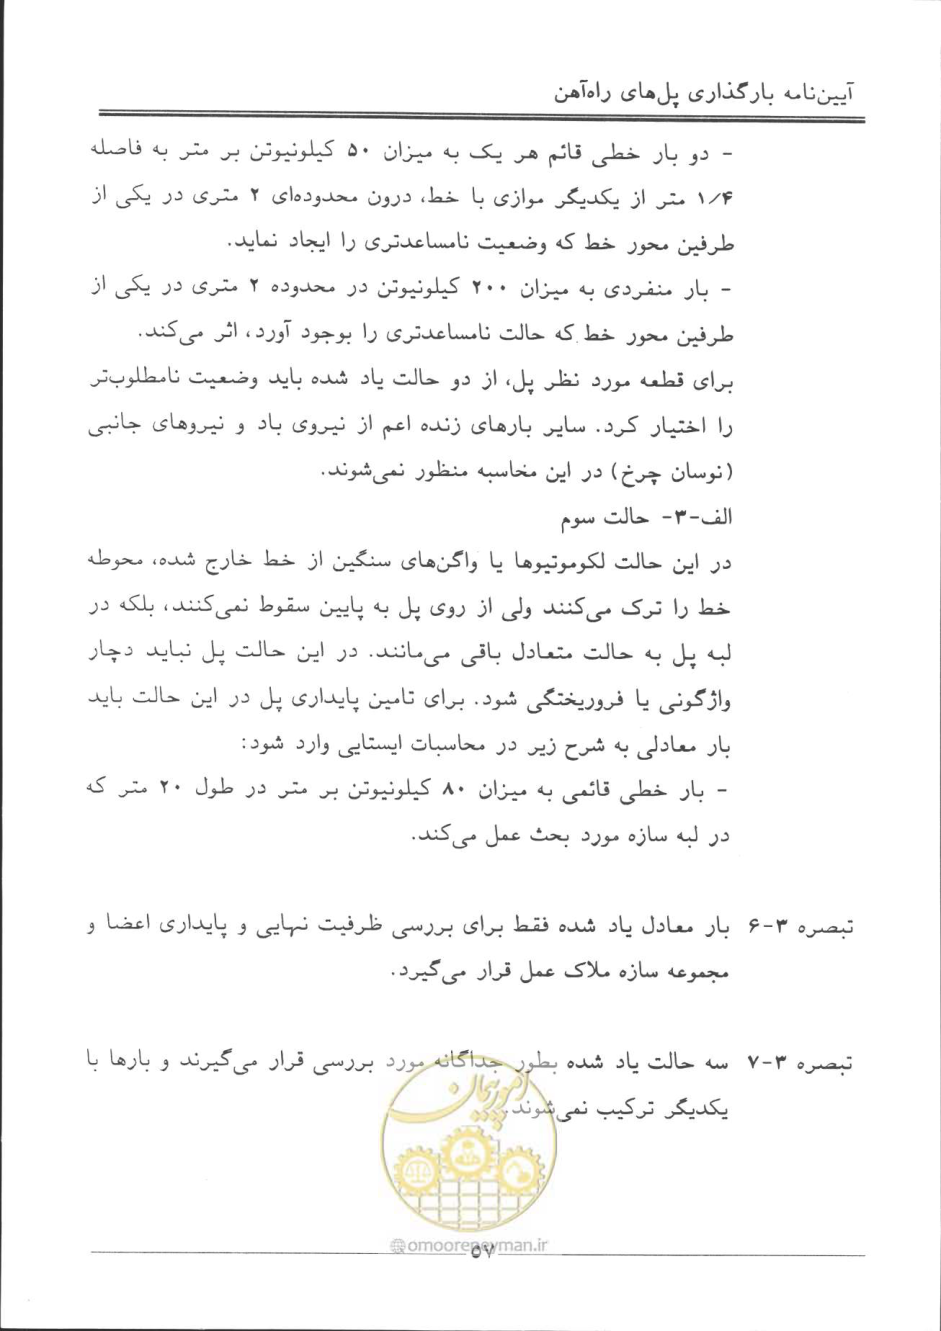 آیین‌نامه بارگذاری پل‌های راه‌آهن
- دو بار خطی قائم هر یک به میزان ۵۰ کیلونیوتن بر متر به فاصله
۱/۴ متر از یکدیگر موازی با خط، درون محدوده‌ای ۲ متری در یکی از
طرفین محور خط که وضعیت نامساعدتری را ایجاد نماید.
- بار منفردی به میزان ۲۰۰ کیلونیوتن در محدوده ۲ متری در یکی از
طرفین محور خط که حالت نامساعدتری را بوجود آورد، اثر می‌کند.
برای قطعه مورد نظر پل، از دو حالت یاد شده باید وضعیت نامطلوب‌تر
را اختیار کرد. سایر بارهای زنده اعم از نیروی باد و نیروهای جانبی
(نوسان چرخ) در این محاسبه منظور نمی‌شوند.
الف-۳- حالت سوم
در این حالت لکوموتیوها یا واگن‌های سنگین از خط خارج شده، محوطه
خط را ترک می‌کنند ولی از روی پل به پایین سقوط نمی‌کنند، بلکه در
لبه پل به حالت متعادل باقی می‌مانند. در این حالت پل نباید دچار
واژگونی یا فروریختگی شود. برای تامین پایداری پل در این حالت باید
بار معادلی به شرح زیر در محاسبات ایستایی وارد شود:
- بار خطی قائمی به میزان ۸۰ کیلونیوتن بر متر در طول ۲۰ متر که
در لبه سازه مورد بحث عمل می‌کند.
تبصره ۳-۶ بار معادل یاد شده فقط برای بررسی ظرفیت نهایی و پایداری اعضا و
مجموعه سازه ملاک عمل قرار می‌گیرد.
تبصره ۳-۷ سه حالت یاد شده بطور جداگانه مورد بررسی قرار می‌گیرند و بارها با
یکدیگر ترکیب نمی‌شوند.
امور پیمان
@omoorepeyman.ir
۵۷